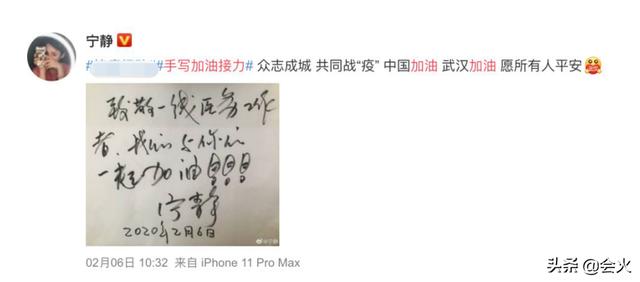 宁静
#手写加油接力# 众志成城 共同战“疫” 中国加油 武汉加油 愿所有人平安
致敬一线医务工作
者，我们与你们
一起加油!!!
宁静
2020年2月6日
@宁静
02月06日 10:32 来自 iPhone 11 Pro Max
头条 @会火